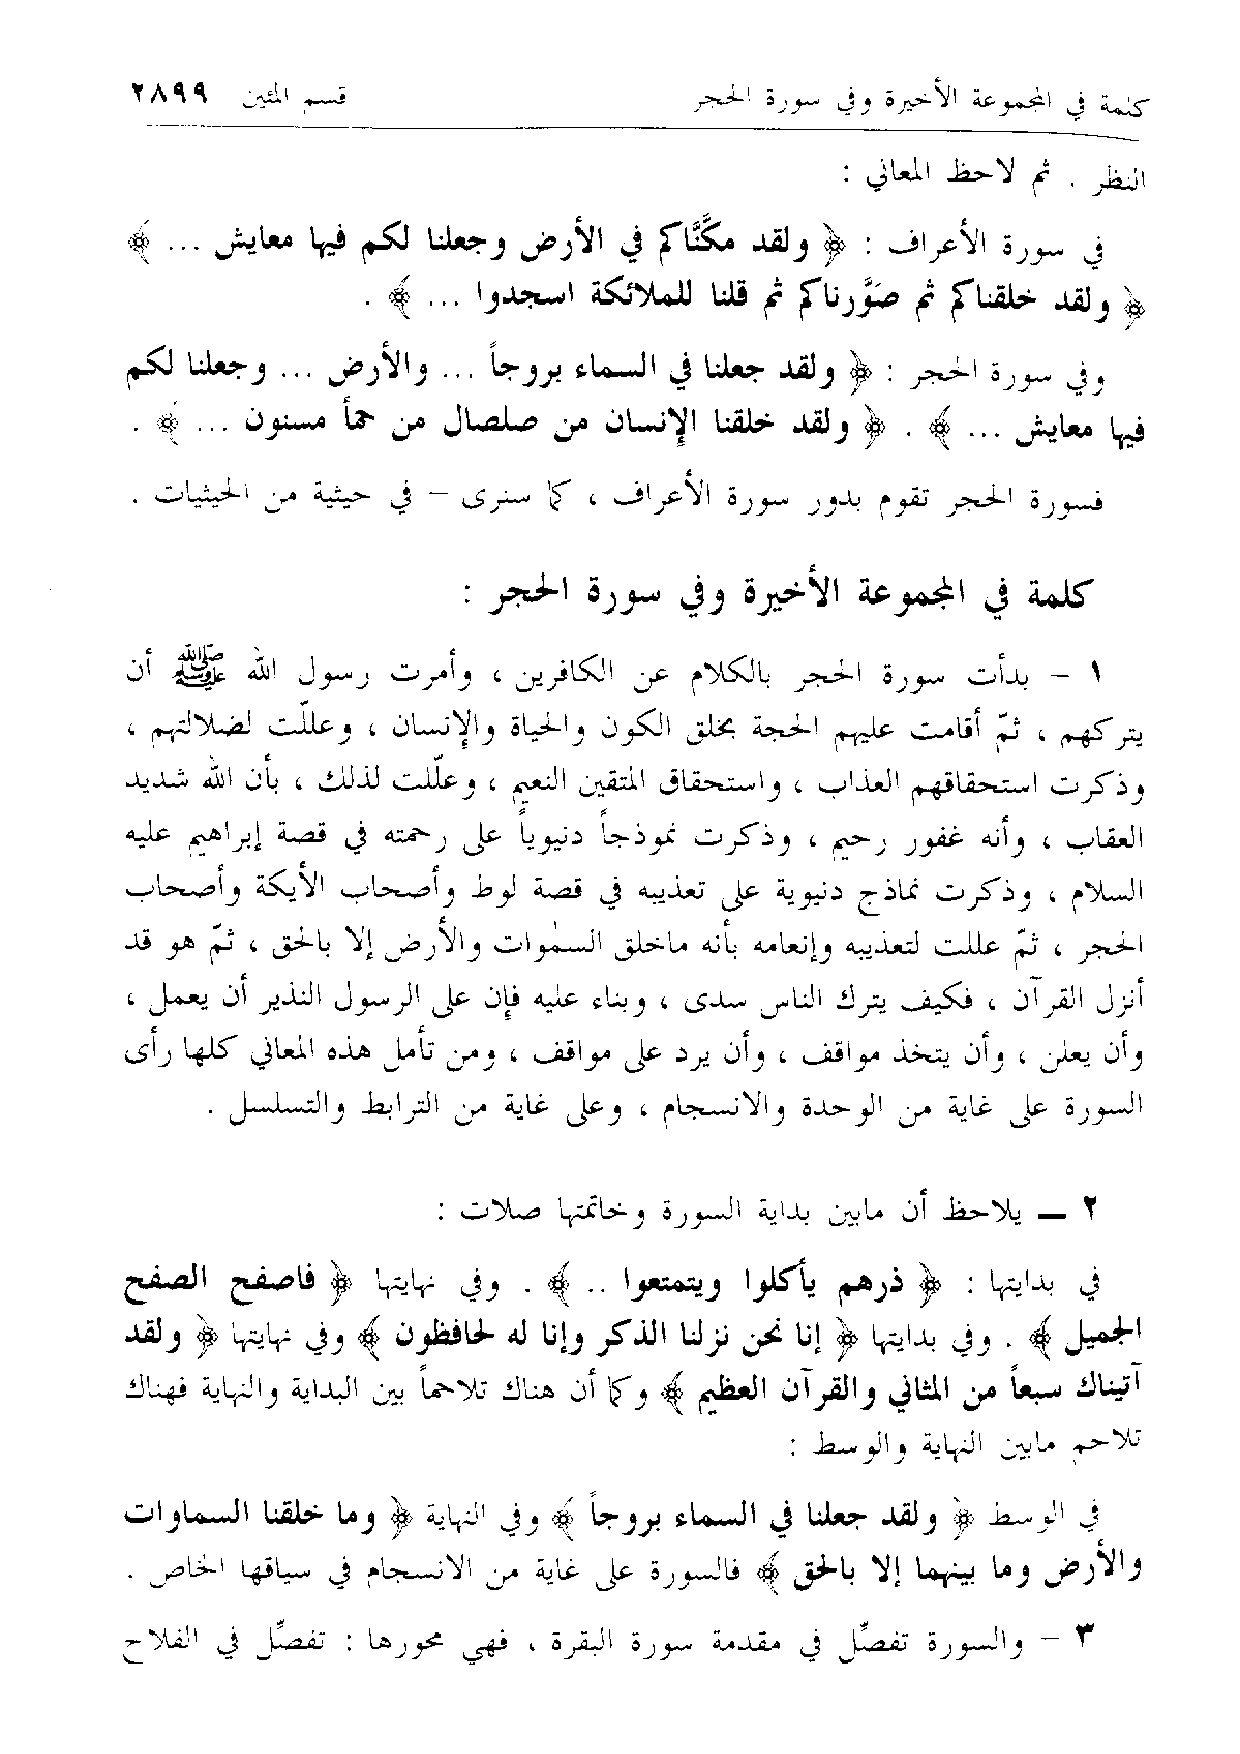 كلمة في المجموعة الأخيرة وفي سورة الحجر قسم المئين ٢٨٩٩
النظر . ثم لاحظ المعاني :
في سورة الأعراف : ﴿ ولقد مكَّنَّاكم في الأرض وجعلنا لكم فيها معايش ... ﴾
﴿ ولقد خلقناكم ثم صَوَّرناكم ثم قلنا للملائكة اسجدوا ... ﴾ .
وفي سورة الحجر : ﴿ ولقد جعلنا في السماء بروجاً ... والأرض ... وجعلنا لكم
فيها معايش ... ﴾ . ﴿ ولقد خلقنا الإنسان من صلصال من حمأ مسنون ... ﴾ .
فسورة الحجر تقوم بدور سورة الأعراف ، كما سنرى – في حيثية من الحيثيات .
كلمة في المجموعة الأخيرة وفي سورة الحجر :
١ – بدأت سورة الحجر بالكلام عن الكافرين ، وأمرت رسول الله ﷺ أن
يتركهم ، ثمّ أقامت عليهم الحجة بخلق الكون والحياة والإنسان ، وعللّت لضلالتهم ،
وذكرت استحقاقهم العذاب ، واستحقاق المتقين النعيم ، وعلّلت لذلك ، بأن الله شديد
العقاب ، وأنه غفور رحيم ، وذكرت نموذجاً دنيوياً على رحمته في قصة إبراهيم عليه
السلام ، وذكرت نماذج دنيوية على تعذيبه في قصة لوط وأصحاب الأيكة وأصحاب
الحجر ، ثمّ عللت لتعذيبه وإنعامه بأنه ماخلق السموات والأرض إلا بالحق ، ثمّ هو قد
أنزل القرآن ، فكيف يترك الناس سدى ، وبناء عليه فإن على الرسول النذير أن يعمل ،
وأن يعلن ، وأن يتخذ مواقف ، وأن يرد على مواقف ، ومن تأمل هذه المعاني كلها رأى
السورة على غاية من الوحدة والانسجام ، وعلى غاية من الترابط والتسلسل .
٢ – يلاحظ أن مابين بداية السورة وخاتمتها صلات :
في بدايتها : ﴿ ذرهم يأكلوا ويتمتعوا .. ﴾ . وفي نهايتها ﴿ فاصفح الصفح
الجميل ﴾ . وفي بدايتها ﴿ إنا نحن نزلنا الذكر وإنا له لحافظون ﴾ وفي نهايتها ﴿ ولقد
آتيناك سبعاً من المثاني والقرآن العظيم ﴾ وكما أن هناك تلاحماً بين البداية والنهاية فهناك
تلاحم مابين النهاية والوسط :
في الوسط ﴿ ولقد جعلنا في السماء بروجاً ﴾ وفي النهاية ﴿ وما خلقنا السماوات
والأرض وما بينهما إلا بالحق ﴾ فالسورة على غاية من الانسجام في سياقها الخاص .
٣ – والسورة تفصّل في مقدمة سورة البقرة ، فهي محورها : تفصّل في الفلاح